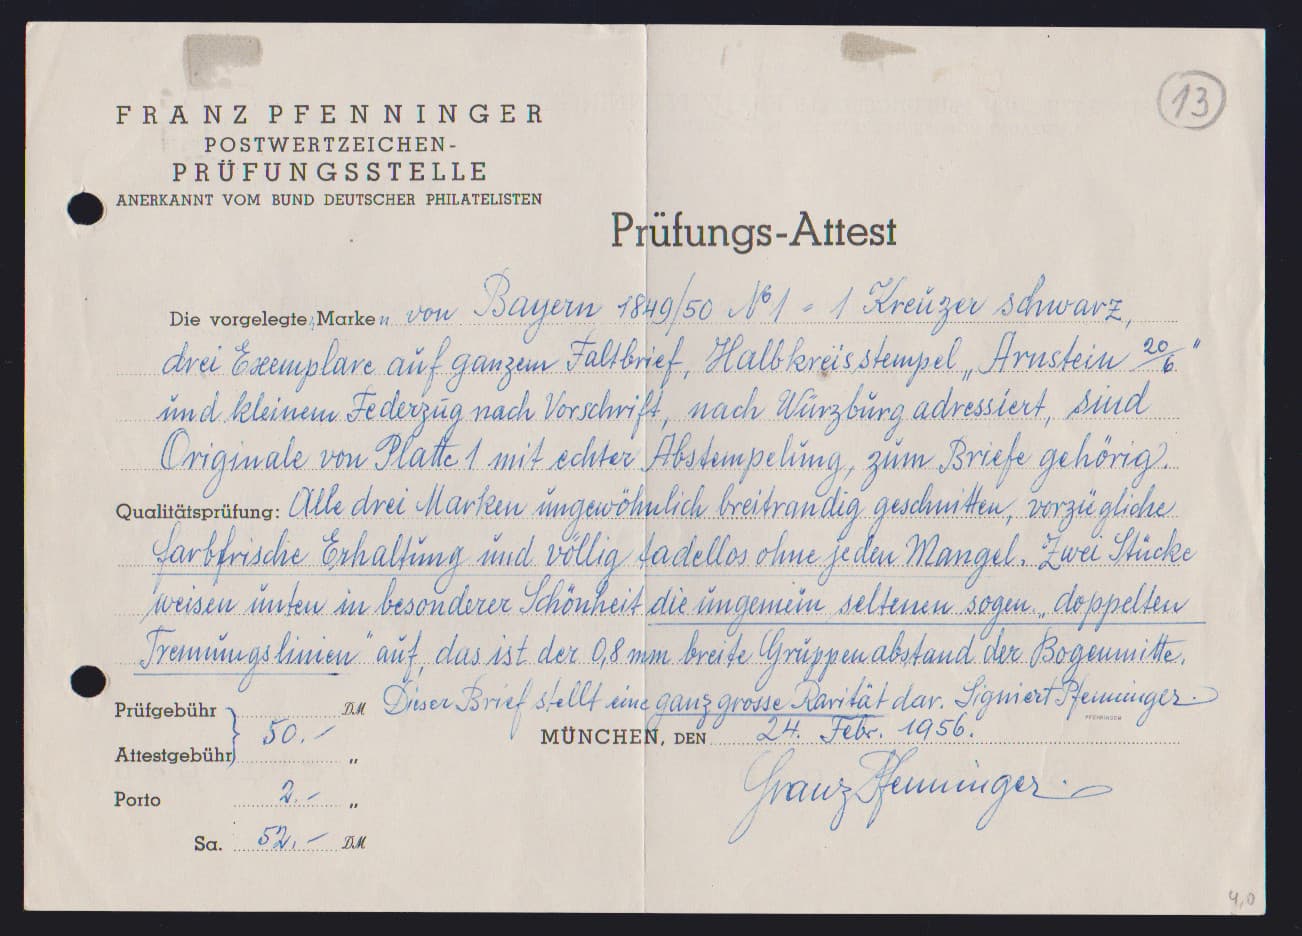 13
FRANZ PFENNINGER
POSTWERTZEICHEN-
PRÜFUNGSSTELLE
ANERKANNT VOM BUND DEUTSCHER PHILATELISTEN
Prüfungs-Attest
Die vorgelegte, Marken von Bayern 1849/50 No 1 - 1 Kreuzer schwarz,
drei Exemplare auf ganzem Faltbrief, Halbkreisstempel „Arnstein 20/6"
und kleinem Federzug nach Vorschrift, nach Würzburg adressiert, sind
Originale von Platte 1 mit echter Abstempelung, zum Briefe gehörig.
Qualitätsprüfung: Alle drei Marken ungewöhnlich breitrandig geschnitten, vorzügliche
farbfrische Erhaltung und völlig tadellos ohne jeden Mangel. Zwei Stücke
weisen unten in besonderer Schönheit die ungemein seltenen sogen. „doppelten
Trennungslinien" auf, das ist der 0,8 mm breite Gruppenabstand der Bogenmitte.
Dieser Brief stellt eine ganz grosse Rarität dar. Signiert Pfenninger.
PFENNINGER
Prüfgebühr DM
Attestgebühr 50.- „
MÜNCHEN, DEN 24. Febr. 1956.
Porto 2.- „
Franz Pfenninger.
Sa. 52.- DM
4,0